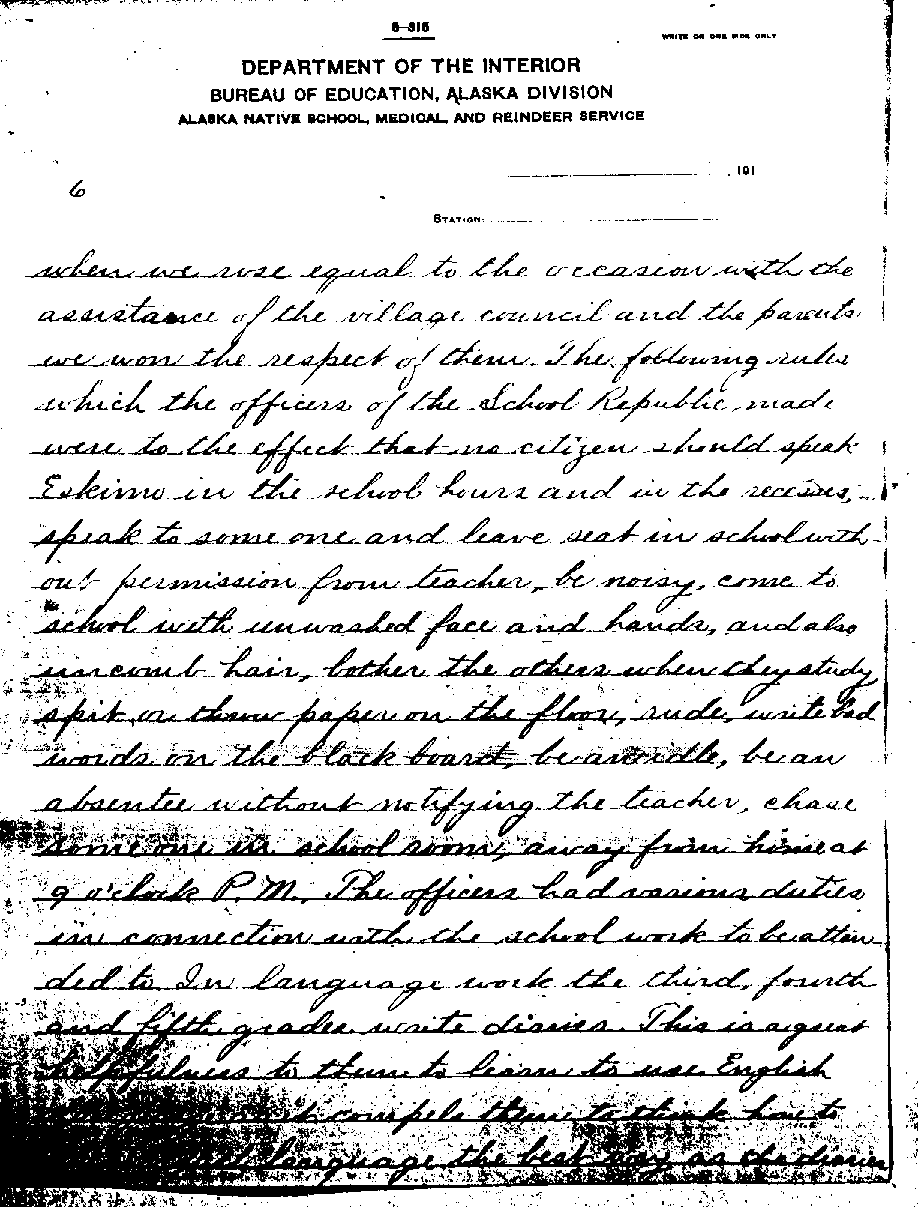 6-315
WRITE ON ONE SIDE ONLY
DEPARTMENT OF THE INTERIOR
BUREAU OF EDUCATION, ALASKA DIVISION
ALASKA NATIVE SCHOOL, MEDICAL, AND REINDEER SERVICE
, 191
6
STATION:
when we rose equal to the occasion with the
assistance of the village council and the parents
we won the respect of them. The following rules
which the officers of the School Republic, made
were to the effect that no citizen should speak
Eskimo in the school hours and in the recesses,
speak to some one and leave seat in school with-
out permission from teacher, be noisy, come to
school with unwashed face and hands, and also
uncomb hair, bother the others when they study,
spit or throw paper on the floor, rude, write bad
words on the black board, be an idle, be an
absentee without notifying the teacher, chase
some one in school room, away from home at
9 o'clock P.M. The officers had various duties
in connection with the school work to be atten
ded to In language work the third, fourth
and fifth grades write diaries. This is a great
helpfulness to them to learn to use English
compels them to think how to
language the best way as the